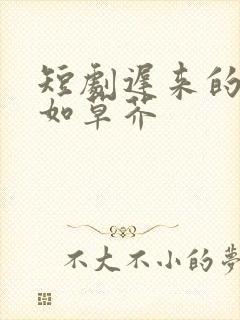 短劇遲来的
如草芥
不大不小的夢